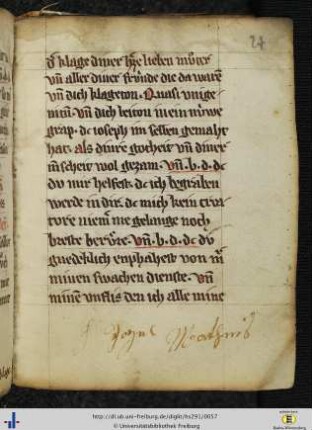 24
d̾ klage diner h̾ze lieben mv̊ter
vn̄ aller diner frv̊nde die da waren
vn̄ dich klageton. Quasi vnige
nitū. vn̄ dich leiton mein nv̊we
grap. dc ioseph im selben gemaht
hat. als diure gocheit vn̄ diner
mēscheit wol gezam. Vn̄. b. d. dc
dv mir helfest. dc ich begraben
werde in dir. dc mich kein crea
tore niem̄ me gelange noch
beriv̊re. Vn̄. b. d. dc dv
gnedeklich enphahest von mir
minen swachen dienste. vn̄
minē vnflis den ich alle mine
http://dl.ub.uni-freiburg.de/diglit/hs291/0057
© Universitätsbibliothek Freiburg